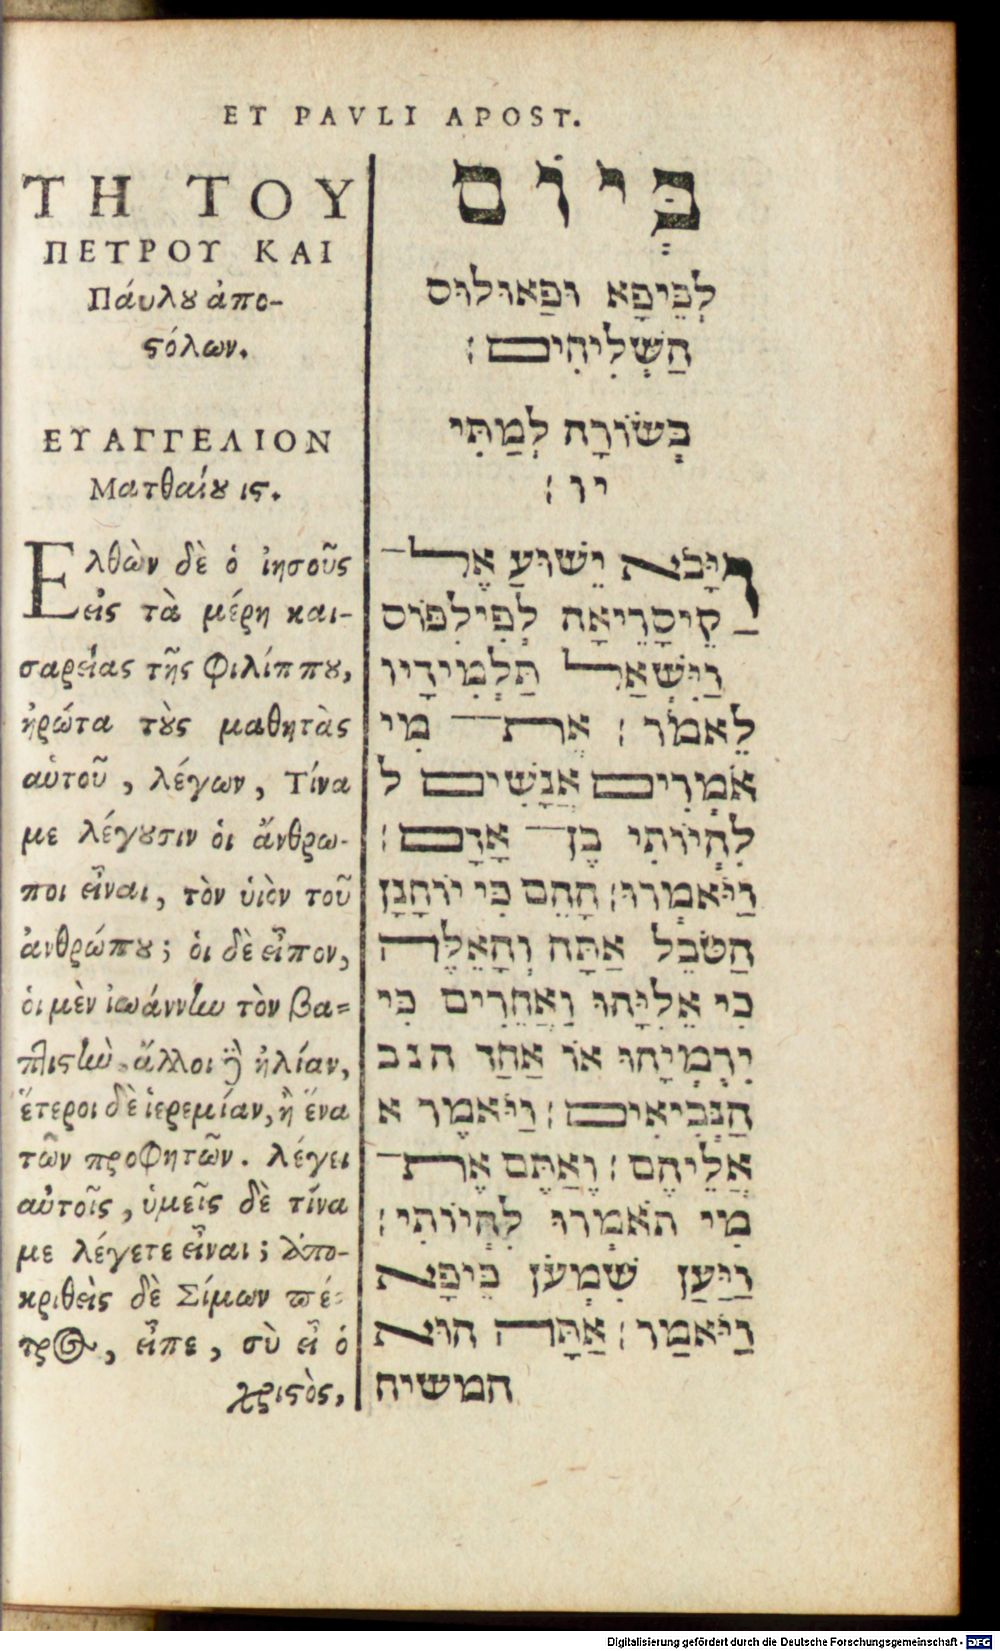 ET PAVLI APOST.
ΤΗ ΤΟΥ
ΠΕΤΡΟΥ ΚΑΙ
Πάυλȣ ἀπο-
ςόλων.
ΕΥΑΓΓΕΛΙΟΝ
Ματθαίȣ ις.
Ελθὼν δὲ ὁ ἰησοῦς
εἰς τὰ μέρη και-
σαρείας τῆς Φιλίππȣ,
ἠρώτα τȣ̀ς μαθητὰς
αὑτοῦ, λέγων, Τίνα
με λέγȣσιν ὁι ἄνθρω-
ποι εἶναι, τὸν ὑιὸν τοῦ
ἀνθρώπȣ; ὁι δὲ εἶπον,
ὁι μὲν ἰωάννην τὸν βα-
πλιςὴν. ἄλλοι ἢ ἠλίαν,
ἕτεροι δὲ ἱερεμίαν, ἢ ἕνα
τῶν προφητῶν. λέγει
αὐτοῖς, ὑμεῖς δὲ τίνα
με λέγετε εἶναι; ἀπο-
κριθεὶς δὲ Σίμων πέ-
τρος, εἶπε, σὺ εἶ ὁ
χριςὸς,
בְּיוֹם
לְכֵיפָא וּפַאוּלוּס
הַשְּׁלִיחִים׃
בְּשׂוֹרָה לְמַתִּי
יו׃
וַיָּבֹא יֵשׁוּעַ אֶל־
קֵיסָרֵיאָה לְפִילִפּוֹס
וַיִּשְׁאַל תַּלְמִידָיו
לֵאמֹר׃ אֶת־ מִי
אֹמְרִים אֲנָשִׁים ל
לִהְיוֹתִי בֶן־ אָדָם׃
וַיֹּאמְרוּ׃ הָהֵם כִּי יוֹחָנָן
הַטֹּבֵל אַתָּה וְהָאֵלֶּה
כִּי אֵלִיָּהוּ וַאֲחֵרִים כִּי
יִרְמְיָהוּ אוֹ אַחַד הנב
הַנְּבִיאִים׃ וַיֹּאמֶר א
אֲלֵיהֶם׃ וְאַתֶּם אֶת־
מִי תֹּאמְרוּ לִהְיוֹתִי׃
וַיַּעַן שִׁמְעֹן כֵּיפָא
וַיֹּאמַר׃ אַתָּה הוּא
המשיח
Digitalisierung gefördert durch die Deutsche Forschungsgemeinschaft - DFG